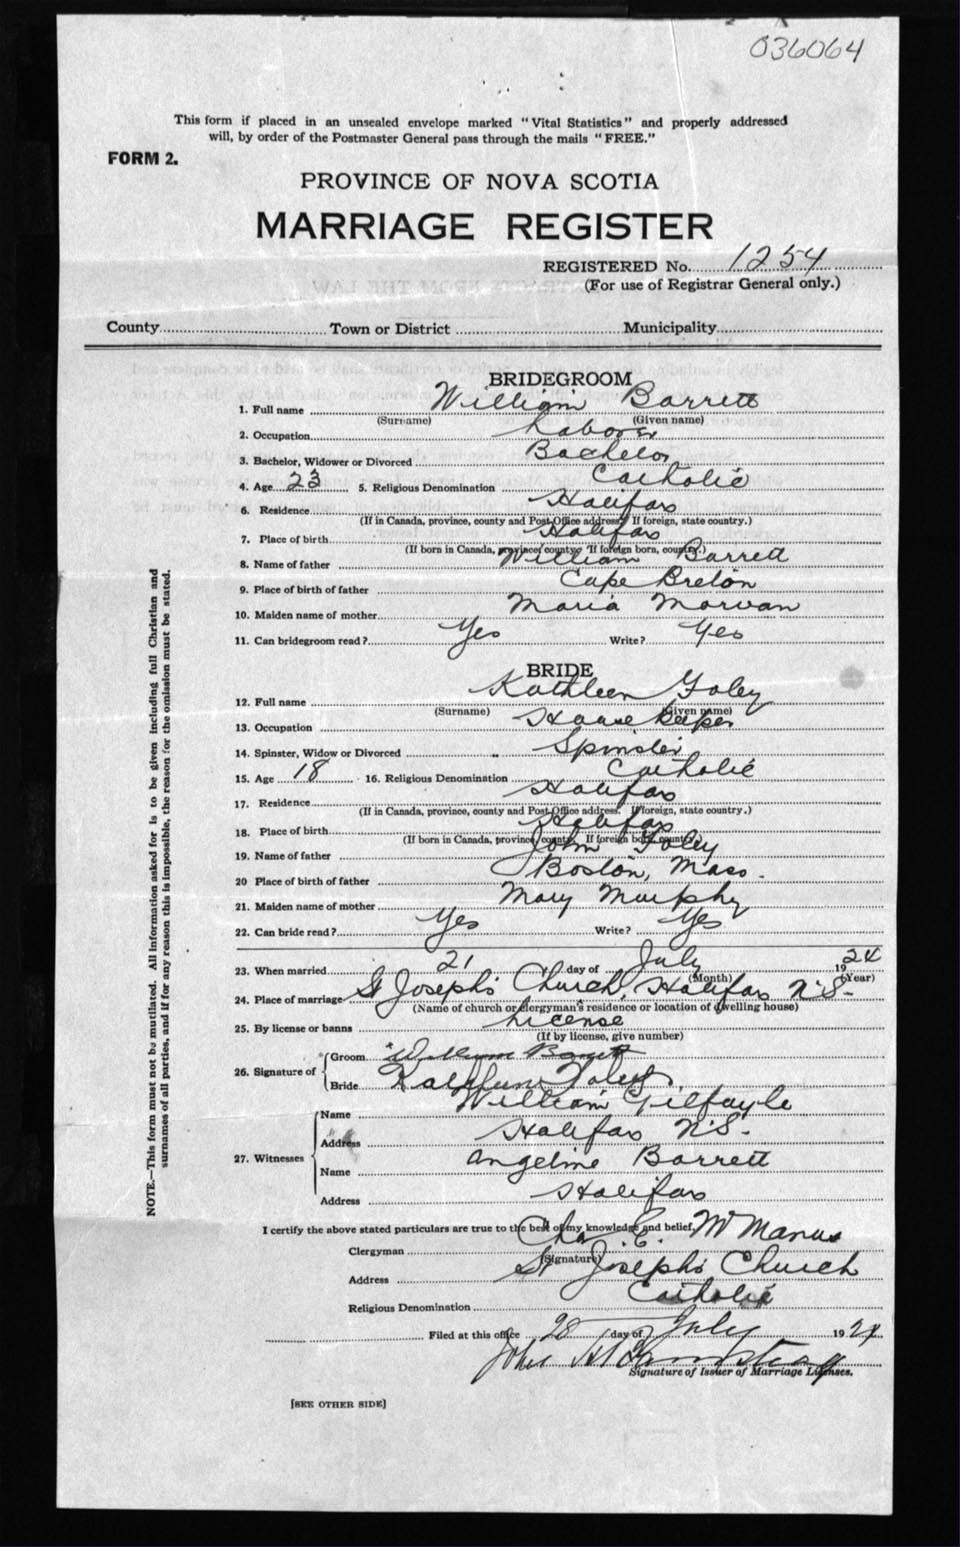 036064
This form if placed in an unsealed envelope marked "Vital Statistics" and properly addressed
will, by order of the Postmaster General pass through the mails "FREE."
FORM 2.
PROVINCE OF NOVA SCOTIA
MARRIAGE REGISTER
REGISTERED No. 1254
(For use of Registrar General only.)
County Town or District Municipality
BRIDEGROOM
1. Full name William Barrett
(Surname) (Given name)
2. Occupation Laborer
3. Bachelor, Widower or Divorced Bachelor
4. Age 23 5. Religious Denomination Catholic
6. Residence Halifax
(If in Canada, province, county and Post Office address. If foreign, state country.)
7. Place of birth Halifax
(If born in Canada, province, county. If foreign born, country.)
8. Name of father William Barrett
9. Place of birth of father Cape Breton
10. Maiden name of mother Maria Morvan
11. Can bridegroom read? Yes Write? Yes
BRIDE
12. Full name Kathleen Foley
(Surname) (Given name)
13. Occupation House Keeper
14. Spinster, Widow or Divorced Spinster
15. Age 18 16. Religious Denomination Catholic
17. Residence Halifax
(If in Canada, province, county and Post Office address. If foreign, state country.)
18. Place of birth Halifax
(If born in Canada, province, county. If foreign born, country.)
19. Name of father John Foley
20 Place of birth of father Boston, Mass.
21. Maiden name of mother Mary Murphy
22. Can bride read? Yes Write? Yes
23. When married 21 day of July 1924
(Month) (Year)
24. Place of marriage St Joseph's Church, Halifax N.S.
(Name of church or clergyman's residence or location of dwelling house)
25. By license or banns License
(If by license, give number)
26. Signature of
Groom William Barrett
Bride Kathleen Foley
27. Witnesses
Name William Gilfoyle
Address Halifax N.S.
Name Angeline Barrett
Address Halifax
I certify the above stated particulars are true to the best of my knowledge and belief,
Clergyman Chas. E. McManus
(Signature)
Address St Joseph's Church
Religious Denomination Catholic
Filed at this office 28 day of July 1924
John H
Signature of Issuer of Marriage Licenses.
[SEE OTHER SIDE]
NOTE.—This form must not be mutilated. All information asked for is to be given including full Christian and
surnames of all parties, and if for any reason this is impossible, the reason for the omission must be stated.